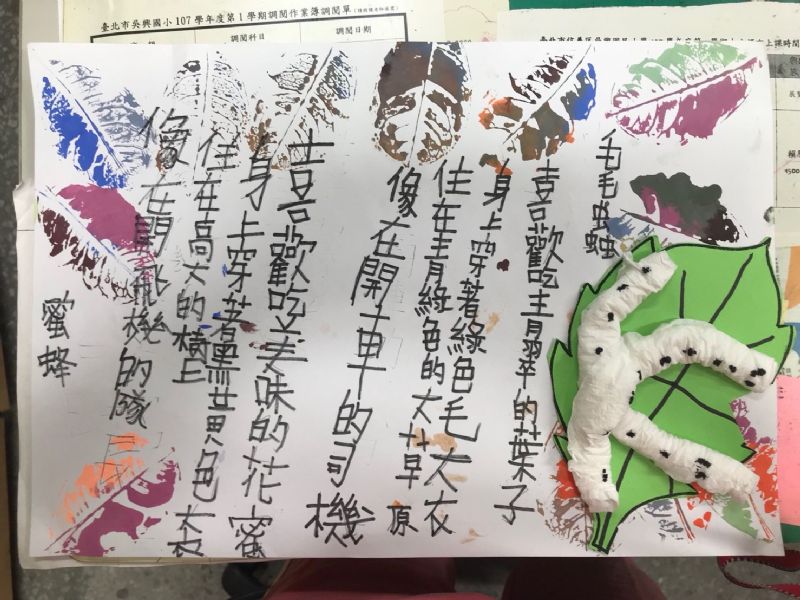 臺北市吳興國小 107 學年度第 1 學期調閱作業簿調閱單
調閱科目
調閱日期
上課時間
毛毛蟲
喜歡吃青翠的葉子
身上穿著綠色毛大衣
住在青綠色的大草原
像在開車的司機
喜歡吃美味的花蜜
身上穿著黑黃色大衣
住在高大的樹上
像在開飛機的隊長
蜜蜂